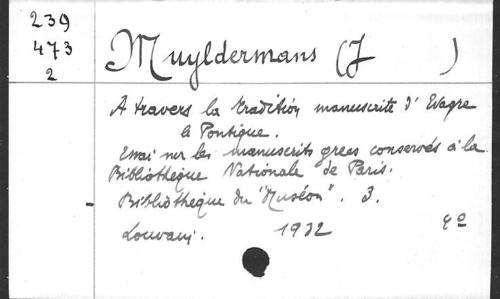 239
473
2
Muyldermans (J )
A travers la tradition manuscrite d'Evagre
le Pontique.
Essai sur les manuscrits grecs conservés à la
Bibliothèque Nationale de Paris.
Bibliothèque du "Muséon". 3.
Louvain. 1932 4º